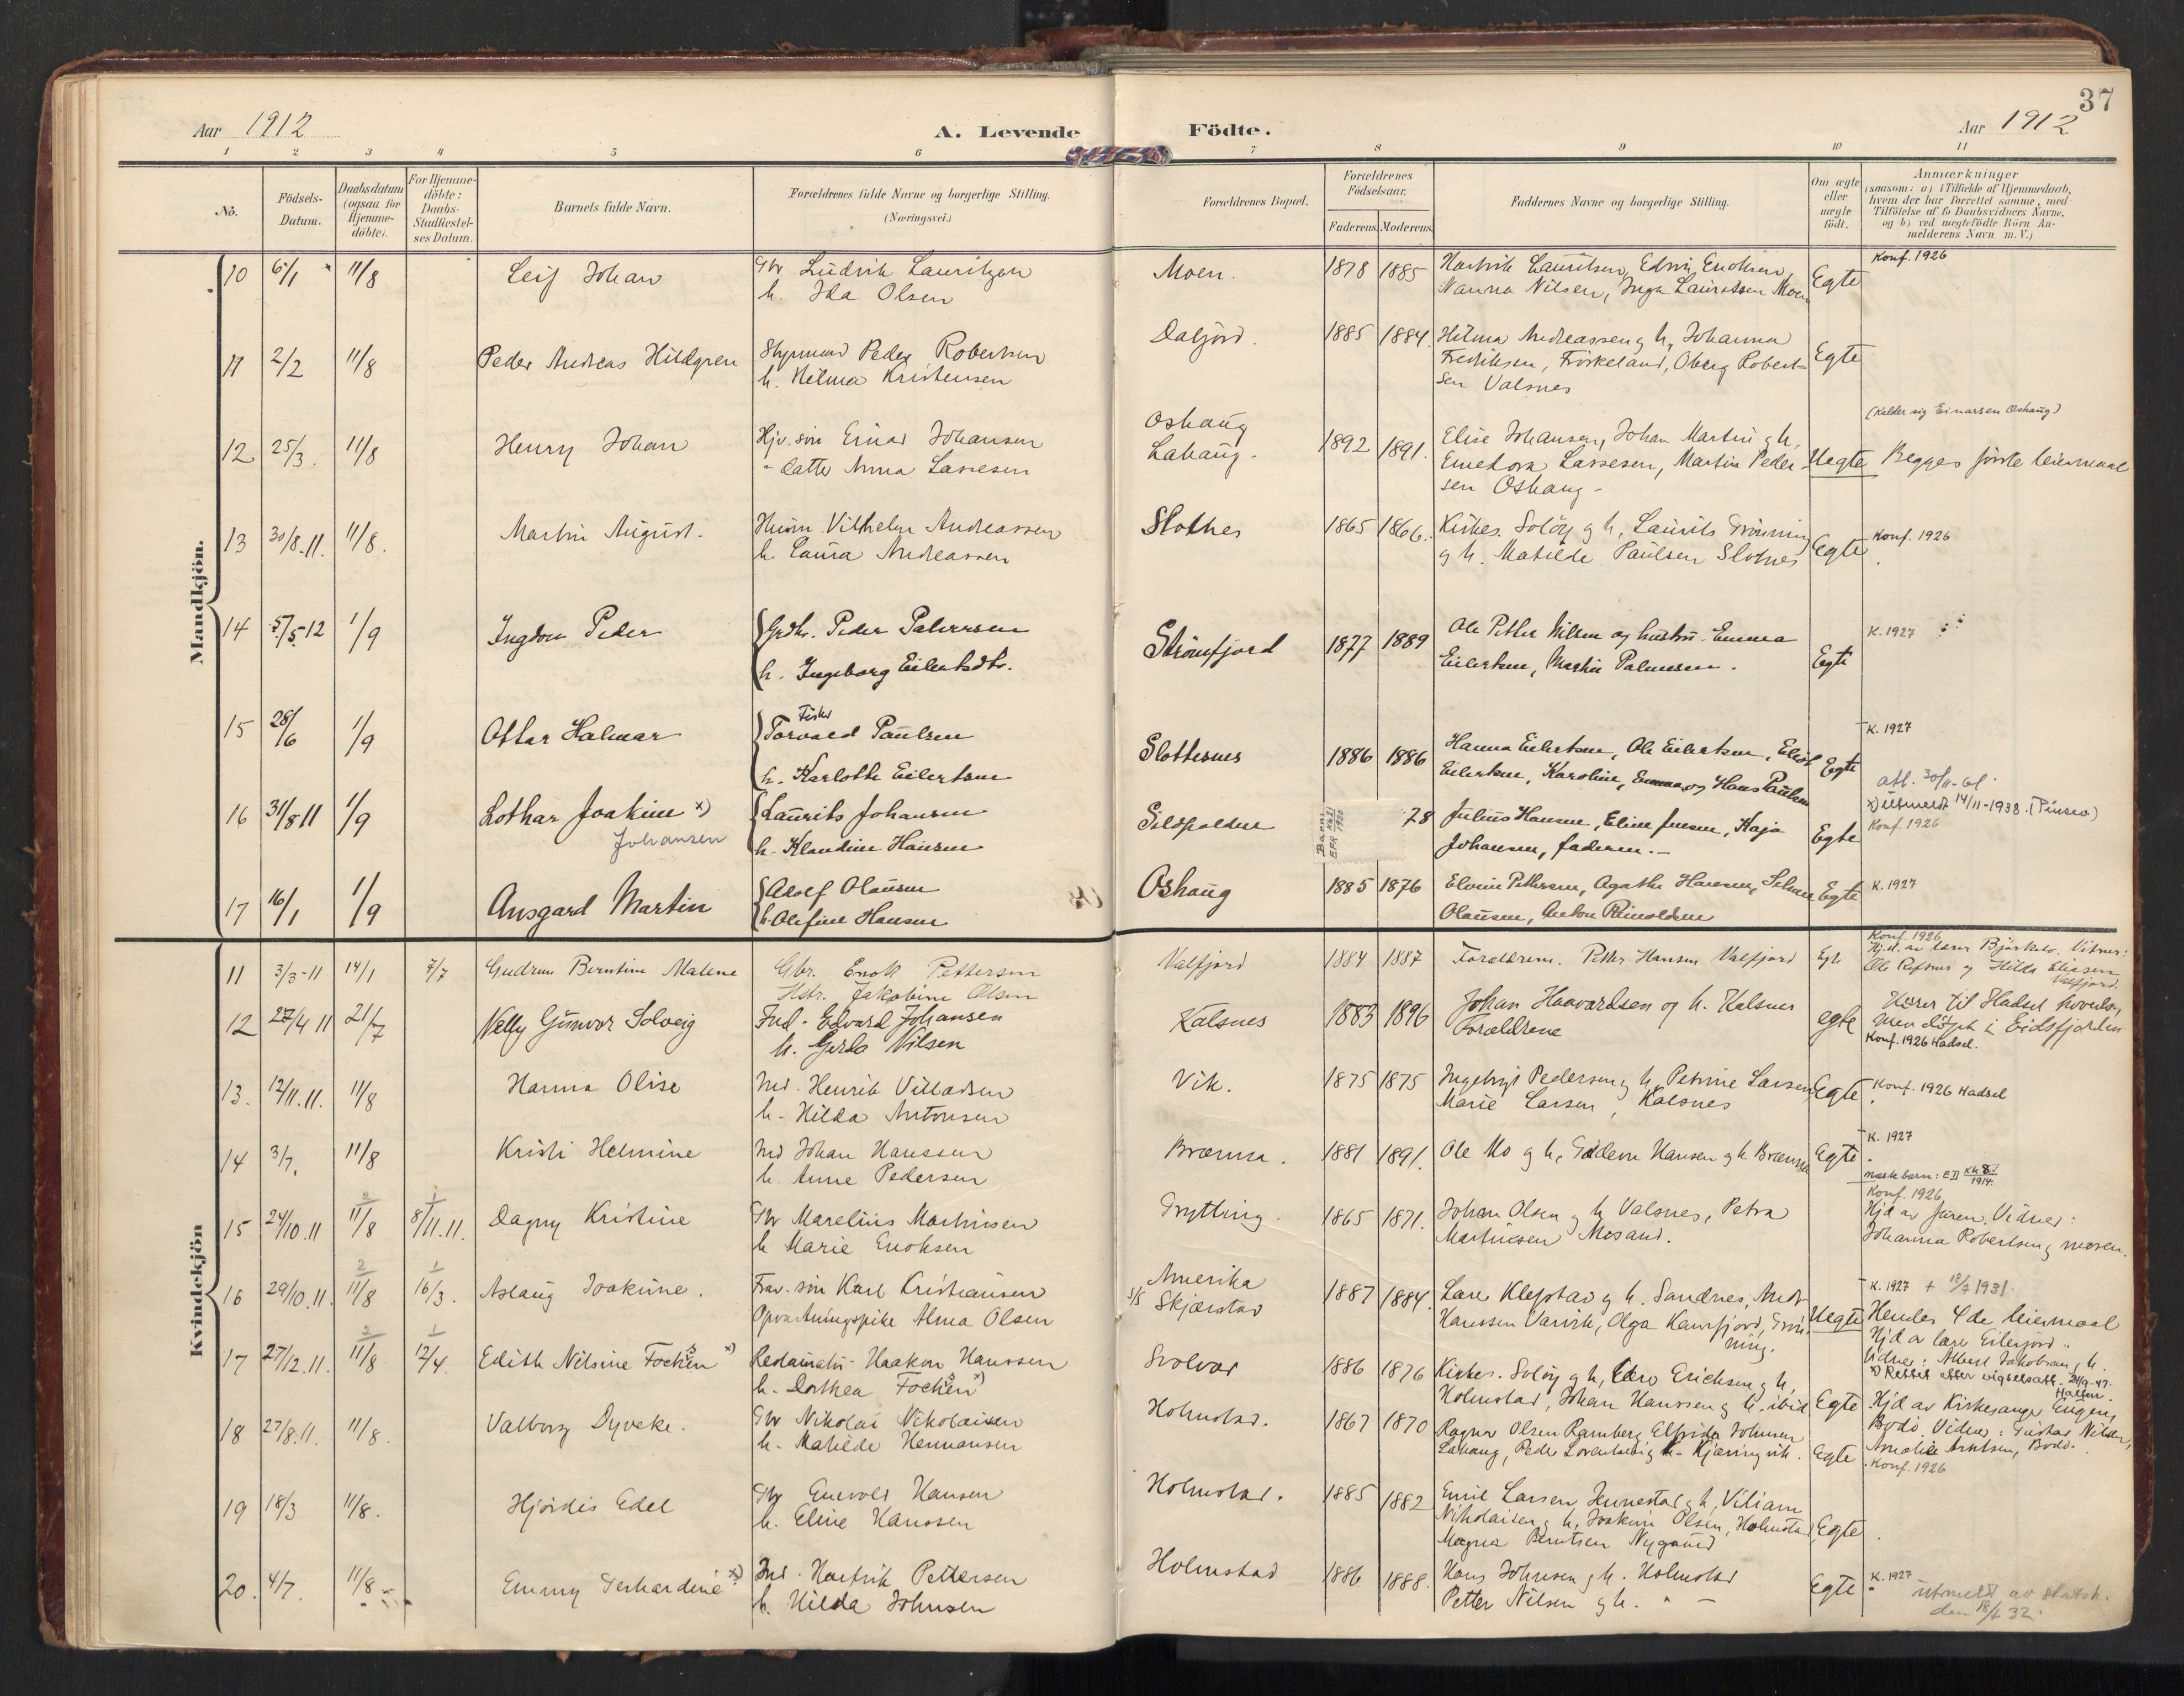 37
Aar 1912
A. Levende Födte.
Aar 1912
1 2 3 4 5 6 7 8 9 10 11
No.
Födsels-Datum.
Daabsdatum (ogsaa for Hjemmedöbte).
For Hjemmedöbte: Daabs-Stadfæstelses Datum.
Barnets fulde Navn.
Forældrenes fulde Navne og borgerlige Stilling. (Næringsvei.)
Forældrenes Bopæl.
Forældrenes Födselsaar.
Faderens. Moderens.
Faddernes Navne og borgerlige Stilling.
Om ægte eller uægte födt.
Anmærkninger
(saasom: a) i Tilfælde af Hjemmedaab, hvem der har forrettet samme, med Tilföielse af to Daabsvidners Navne, og b) ved uægtefödte Börn Anmelderens Navn m. V.)
Mandkjön.
10 6/1 11/8 Leif Johan
Gbr Ludvik Lauritzen
h. Ida Olsen
Moen. 1878 1885
Hartvik Lauritsen, Edvin Enoksen,
Nanna Nilsen, Inga Lauritsen Moen
Egte
Konf. 1926
11 2/2 11/8 Peder Andreas Hildgren
Styrmand Peder Robertsen
h. Hilma Kristensen
Dalfjord. 1885 1884.
Hilma Andreassen og h, Johanna
Fredriksen, Fiskeland, Oberg Robert-
sen Valsnes
Egte
12 25/3. 11/8 Henry Johan
Hjv. sön Einar Johansen
- datter Anna Lassesen
Oshaug
Lahaug. 1892 1891.
Elise Johansen, Johan Martin og h.
Emedora Lassesen, Martin Peder-
sen Oshaug -
Uegte
(kalder sig Einarsen Oshaug)
Begges förste leiermaal
13 30/8.11. 11/8. Martin August.
Husm. Vilhelm Andreassen
h. Laura Andreassen
Slotnes 1865 1866.
Kirkes. Solöy og h, Laurits Grönning
og h. Matilde Paulsen Slotnes
Egte
Konf. 1926
14 5/5-12 1/9 Ingdon Peder
Grdbr. Peder Palmesen
h. Ingeborg Eilertsdtr.
Strömfjord 1877 1889
Ole Petter Nilsen og hustru Emma
Eilertsen, Martin Palmesen.
Egte
K. 1927
15 28/6 1/9 Ottar Halmar
Fisker
Torvald Paulsen
h. Karlotte Eilertsen
Slottesnes 1886 1886
Hanna Eilertsen, Ole Eilertsen, Eliot
Eilertsen, Karoline, Emma og Hans Paulsen
Egte
K. 1927
16 31/8 11 1/9 Lothar Joakim x)
Johansen
Laurits Johansen
h. Klaudine Hansen
Sildpolden 78
Julius Hansen, Eline Jensen, Kaja
Johansen, faderen.-
Egte
att. 30/11-61.
x) utmeldt 14/11-1938. (Pinsev.)
Konf. 1926
17 16/1 1/9 Ansgard Martin
Adolf Olausen
h. Olefine Hansen
Oshaug 1885 1876
Elvine Pettersen, Agathe Hansen, Selma
Olausen, Anton Reinoldsen
Egte
K. 1927
Kvindekjön
11 3/3-11 14/1 7/7 Gudrun Berntine Malene
Gbr. Enok Pettersen
Hstr. Jakobine Olsen
Valfjord 1884 1887
Forældrene. Petter Hansen Valfjord
Egte
Konf. 1926
Hj.d. av lærer Björklo. Vitner:
Ole Refsnes og Hilda Eliasen
Valfjord.
12 27/4 11 21/7 Nelly Gunvor Solveig
Ind. Edvard Johansen
h. Gerda Nilsen
Kalsnes 1883 1896
Johan Haavardsen og h. Kalsnes
Forældrene
egte
Hörer til Hadsel hovedsogn
Men döpt i Eidsfjorden
Konf. 1926 Hadsel.
13. 12/11.11. 11/8 Hanna Olise
Ind. Henrik Villadsen
h. Hilda Antonsen
Vik. 1875 1875
Ingebrigt Pedersen og h, Petrine Larsen
Marie Larsen, Kalsnes
Egte
Konf. 1926 Hadsel
14 3/7. 11/8 Kristi Helmine
Ind Johan Hanssen
h. Anne Pedersen
Bræmsa. 1881 1891.
Ole Mo og h, Gidden Hansen og h Bræmsa
Egte
K. 1927
15 24/10.11 11/8 8/11.11. Dagny Kristine
Gbr Marelius Martinsen
h Marie Enoksen
Frytting. 1865 1871.
Johan Olsen og h Valsnes, Petra
Martinsen Mosand.
neste barn: ED Kb 8 1914.
Konf. 1926
Hjd av faren. Vidner:
Johanna Robertsen og moren.
16 29/10.11. 11/8 16/3. Aslaug Joakime.
Frav. sön Karl Kristiansen
Opvartningspike Alma Olsen
Amerika
s/s Skjærstad 1887 1884.
Lars Klepstad og h. Sandnes, Andr
Hanssen Varvik, Olga Kanfjord, Grön-
ning.
Uegte
K. 1927 + 13/7 1931.
Hendes 4de leiermaal
17 27/12.11. 11/8 12/4. Edith Nilsine Fochsen x)
Restauratör Haakon Hanssen
h. Dorthea Fochsen x)
Svolvær 1886 1876
Kirkes. Solöy og h, Edw Erichsen og h,
Holmstad, Johan Hanssen og h. ibid
Egte
Hjd av lærer Eilerfjord..
Vidner: Albert Jakobsen og h.
x) Rettet etter vigselsatt. 24/9-47.
Halten.
18 27/8.11. 11/8. Valborg Dyveke.
Gbr Nikolai Nikolaisen
h. Matilde Hermansen
Holmstad. 1867 1870
Ragnv Olsen Ramberg Elfrida Johnsen
Lahaug, Peder Lorentsen og h. Kjæringvik.
Egte
Hjd av Kirkesanger Eugen,
Bodö. Vidner: Gustav Nilsen,
Amalie Arntsen, Bodö.
Konf. 1926
19 18/3 11/8. Hjördis Edel
Gbr Enevold Hansen
h. Eline Hanssen
Holmstad. 1885 1882
Emil Larsen Jennestad og h, Viliam
Nikolaisen og h, Joakim Olsen, Holmstad,
Magna Berntsen Nygaard
Egte
20. 4/7. 11/8 Emmy Gerhardine x)
Ind. Hartvik Pettersen
h. Hilda Johnsen
Holmstad 1886 1888.
Hans Johnsen og h. Holmstad
Petter Nilsen og h. " -
Egte
K. 1927
utmeldt av statsk.
den 18/4 32.